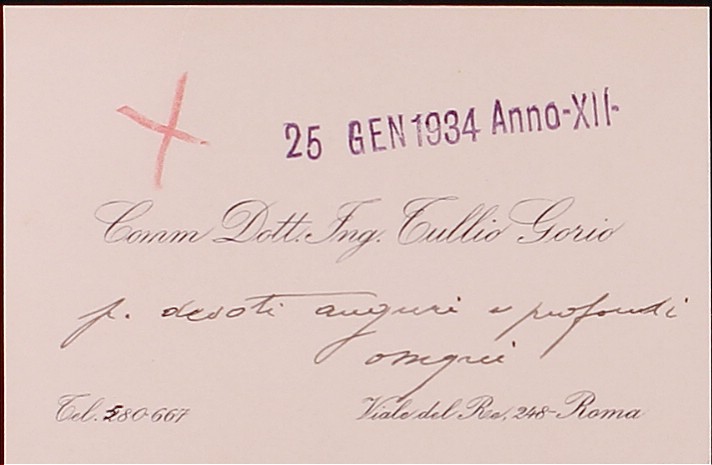 25 GEN 1934 Anno-XII-
Comm Dott. Ing. Tullio Gorio
p. devoti auguri e profondi
omaggi
Tel. 580-667
Viale del Re, 248-Roma